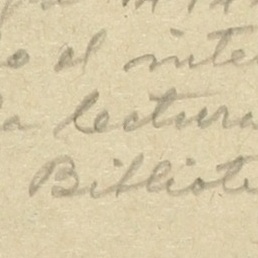 o el inte
la lectura
Bibliote